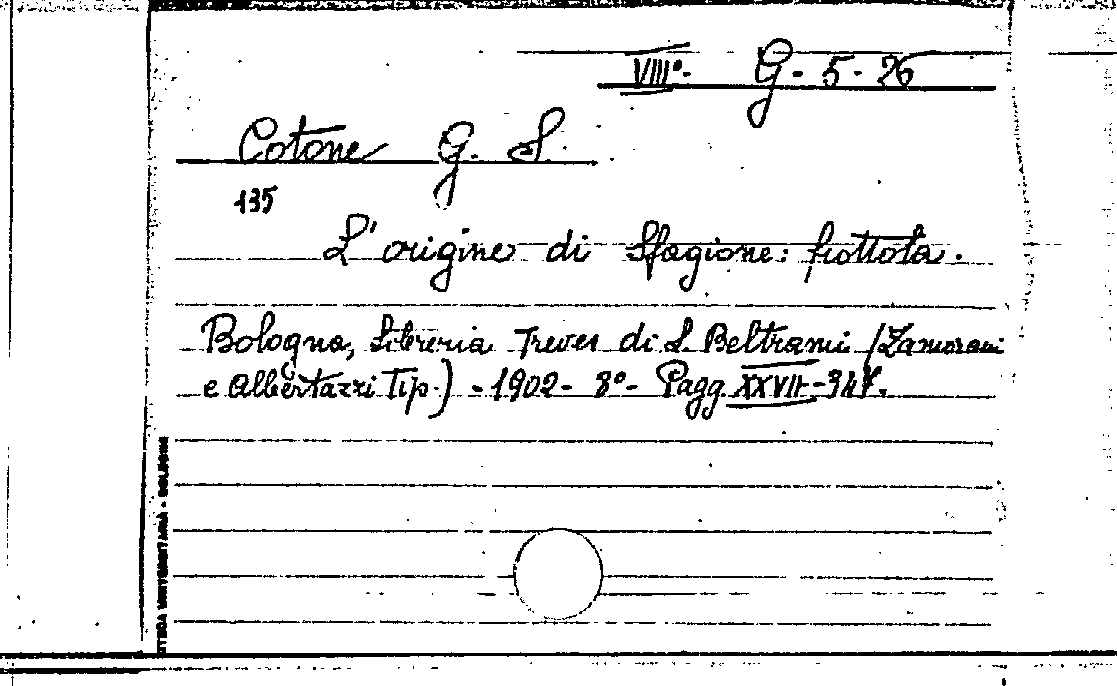 VIII°. G. 5. 26
Cotone G. S.
135
L'origine di Sfagione: frottola.
Bologna, Libreria Treves di L. Beltrami (Zamorani
e Albertazzi Tip.) - 1902 - 8° - Pagg. XXVII-347.
UNIVERSITARIA - BOLOGNA